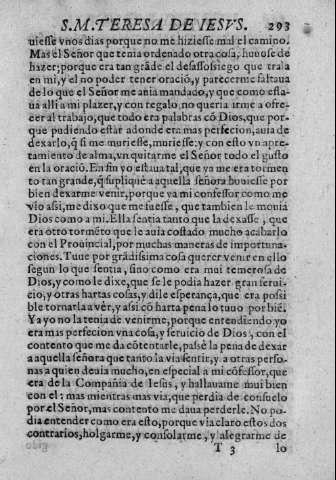 S. M. TERESA DE IESVS. 293
uiesse vnos dias porque no me hiziesse mal el camino.
Mas el Señor que tenia ordenado otra cosa, huuose de
hazer; porque era tan grãde el desassossiego que traîa
en mi, y el no poder tener oració, y parecerme faltaua
de lo que el Señor me auia mandado, y que como esta-
ua allì a mi plazer, y con regalo, no queria irme a ofre-
cer al trabajo, que todo era palabras cõ Dios, que por-
que pudiendo estar adonde era mas perfecion, auia de
dexarlo, q̃ si me muriesse, muriesse: y con esto vn apre-
tamiento de alma, vn quitarme el Señor todo el gusto
en la oració. En fin yo estaua tal, que ya me era tormen
to tan grande, q̃ supliquè a aquella señora huuiesse por
bien dexarme venir, porque ya mi confessor como me
vio assi, me dixo que me fuesse, que tambien le mouia
Dios como a mi. Ella sentia tanto que la dexasse, que
era otro tormẽto que le auia costado mucho acabarlo
con el Prouincial, por muchas maneras de importuna-
ciones. Tuue por grãdissima cosa querer venir en ello
segun lo que sentia, sino como era mui temerosa de
Dios, y como le dixe, que se le podia hazer gran serui-
cio, y otras hartas cosas, y dile esperança, que era possi
ble tornarla a vèr, y assi cõ harta pena lo tuuo por biẽ.
Ya yo no la tenia de venirme, porque entendiendo yo
era mas perfecion vna cosa, y seruicio de Dios, con el
contento que me da cõtentarle, passè la pena de dexar
a aquella señora que tanto la via sentir, y a otras perso-
nas a quien deuia mucho, en especial a mi cõfessor, que
era de la Compañia de Iesus, y hallauame mui bien
con el: mas mientras mas via, que perdia de consuelo
por el Señor, mas contento me daua perderle. No po-
dia entender como era esto, porque via claro estos dos
contrarios, holgarme, y consolarme, y alegrarme de
T 3 lo